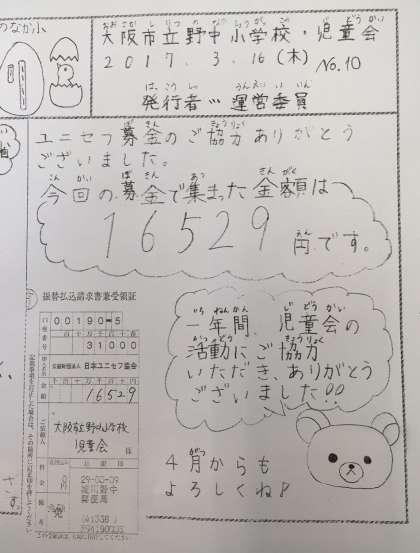 のなか小
大阪市立野中小学校・児童会
2017.3.16(木) No.10
発行者…運営委員
ユニセフ募金のご協力ありがとう
ございました。
今回の募金で集まった金額は
16529円です。
振替払込請求書兼受領証
00190-5
31000
公益財団法人 日本ユニセフ協会
16529
大阪市立野中小学校
児童会
様
29-03-09
淀川野中
郵便局
一年間、児童会の
活動にご協力
いただき、ありがとう
ございました!!
4月からも
よろしくね♪